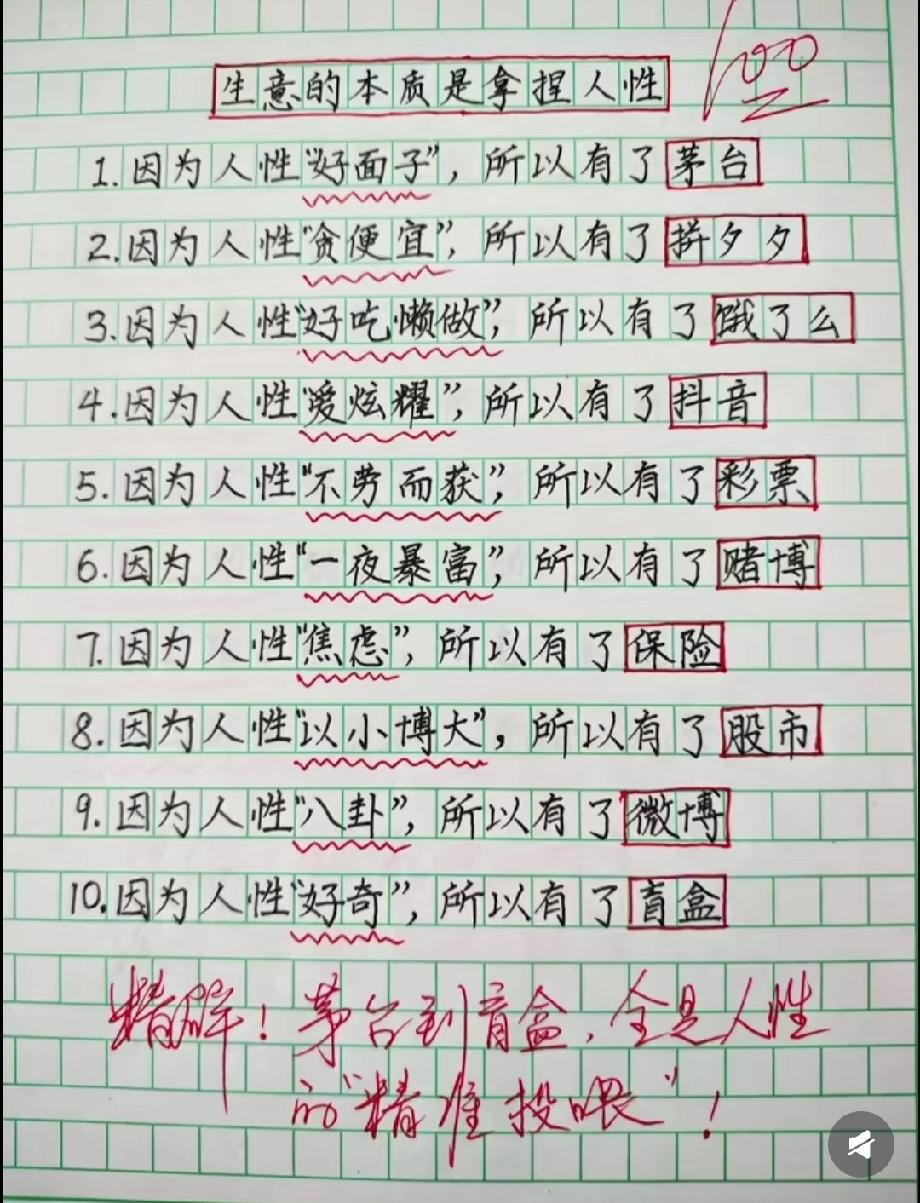 100
生意的本质是拿捏人性
1.因为人性“好面子”，所以有了茅台
2.因为人性“贪便宜”，所以有了拼夕夕
3.因为人性“好吃懒做”，所以有了饿了么
4.因为人性“爱炫耀”，所以有了抖音
5.因为人性“不劳而获”，所以有了彩票
6.因为人性“一夜暴富”，所以有了赌博
7.因为人性“焦虑”，所以有了保险
8.因为人性“以小博大”，所以有了股市
9.因为人性“八卦”，所以有了微博
10.因为人性“好奇”，所以有了盲盒
精辟！茅台到盲盒，全是人性
的“精准投喂”！